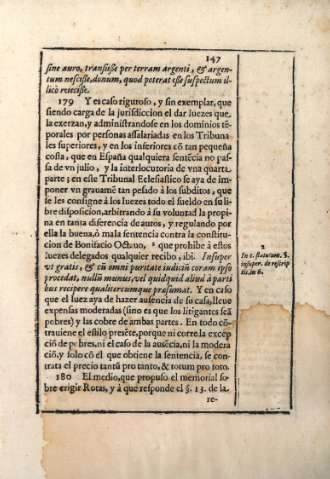 147
sine auro, transisse per terram argenti, & argen-
tum nescisse, donum, quod poterat esse suspectum il-
lico reiecisse.
179 Y es caso riguroso, y sin exemplar, que
siendo carga de la jurisdiccion el dar luezes que
la exerzan, y administrandose en los dominios tē-
porales por personas assalariadas en los Tribuna
les superiores, y en los inferiores cō tan pequeña
costa, que en España qualquiera sentēcia no pas-
sa de vn julio, y la interlocutoria de vna quarta
parte; en este Tribunal Eclesiastico se aya de im-
poner vn grauamē tan pesado à los subditos, que
se les consigne à los luezes todo el sueldo en su li-
bre disposicion, arbitrando à su voluntad la propi
na en tanta diferencia de autos, y regulando por
ella la buena, ò mala sentencia contra la constitu-
cion de Bonifacio Octauo, 2 que prohibe à estos
luezes delegados qualquier recibo, ibi. Insuper
vt gratis, & cū omni puritate iudiciū coram ipsis
procedat, nullū munus, vel quidquid aliud à parti
bus recipere qualitercumque præsumat. Y en caso
que el luez aya de hazer ausencia de su casa, lleue
expensas moderadas (sino es que los litigantes seā
pobres) y las cobre de ambas partes. En todo cō-
trauiene el estilo presēte, porque ni corre la excep
ciō de pobres, ni el caso de la ausēcia, ni la modera
ciō, y solo cō el que obtiene la sentencia, se con-
trata el precio tantū pro tanto, & totum pro toto.
180 El medio, que propuso el memorial so-
bre erigir Rotas, y à que responde el §. 13. de la.
re-
2
In c. statutum. §.
insuper. de rescrip
tis. in 6.